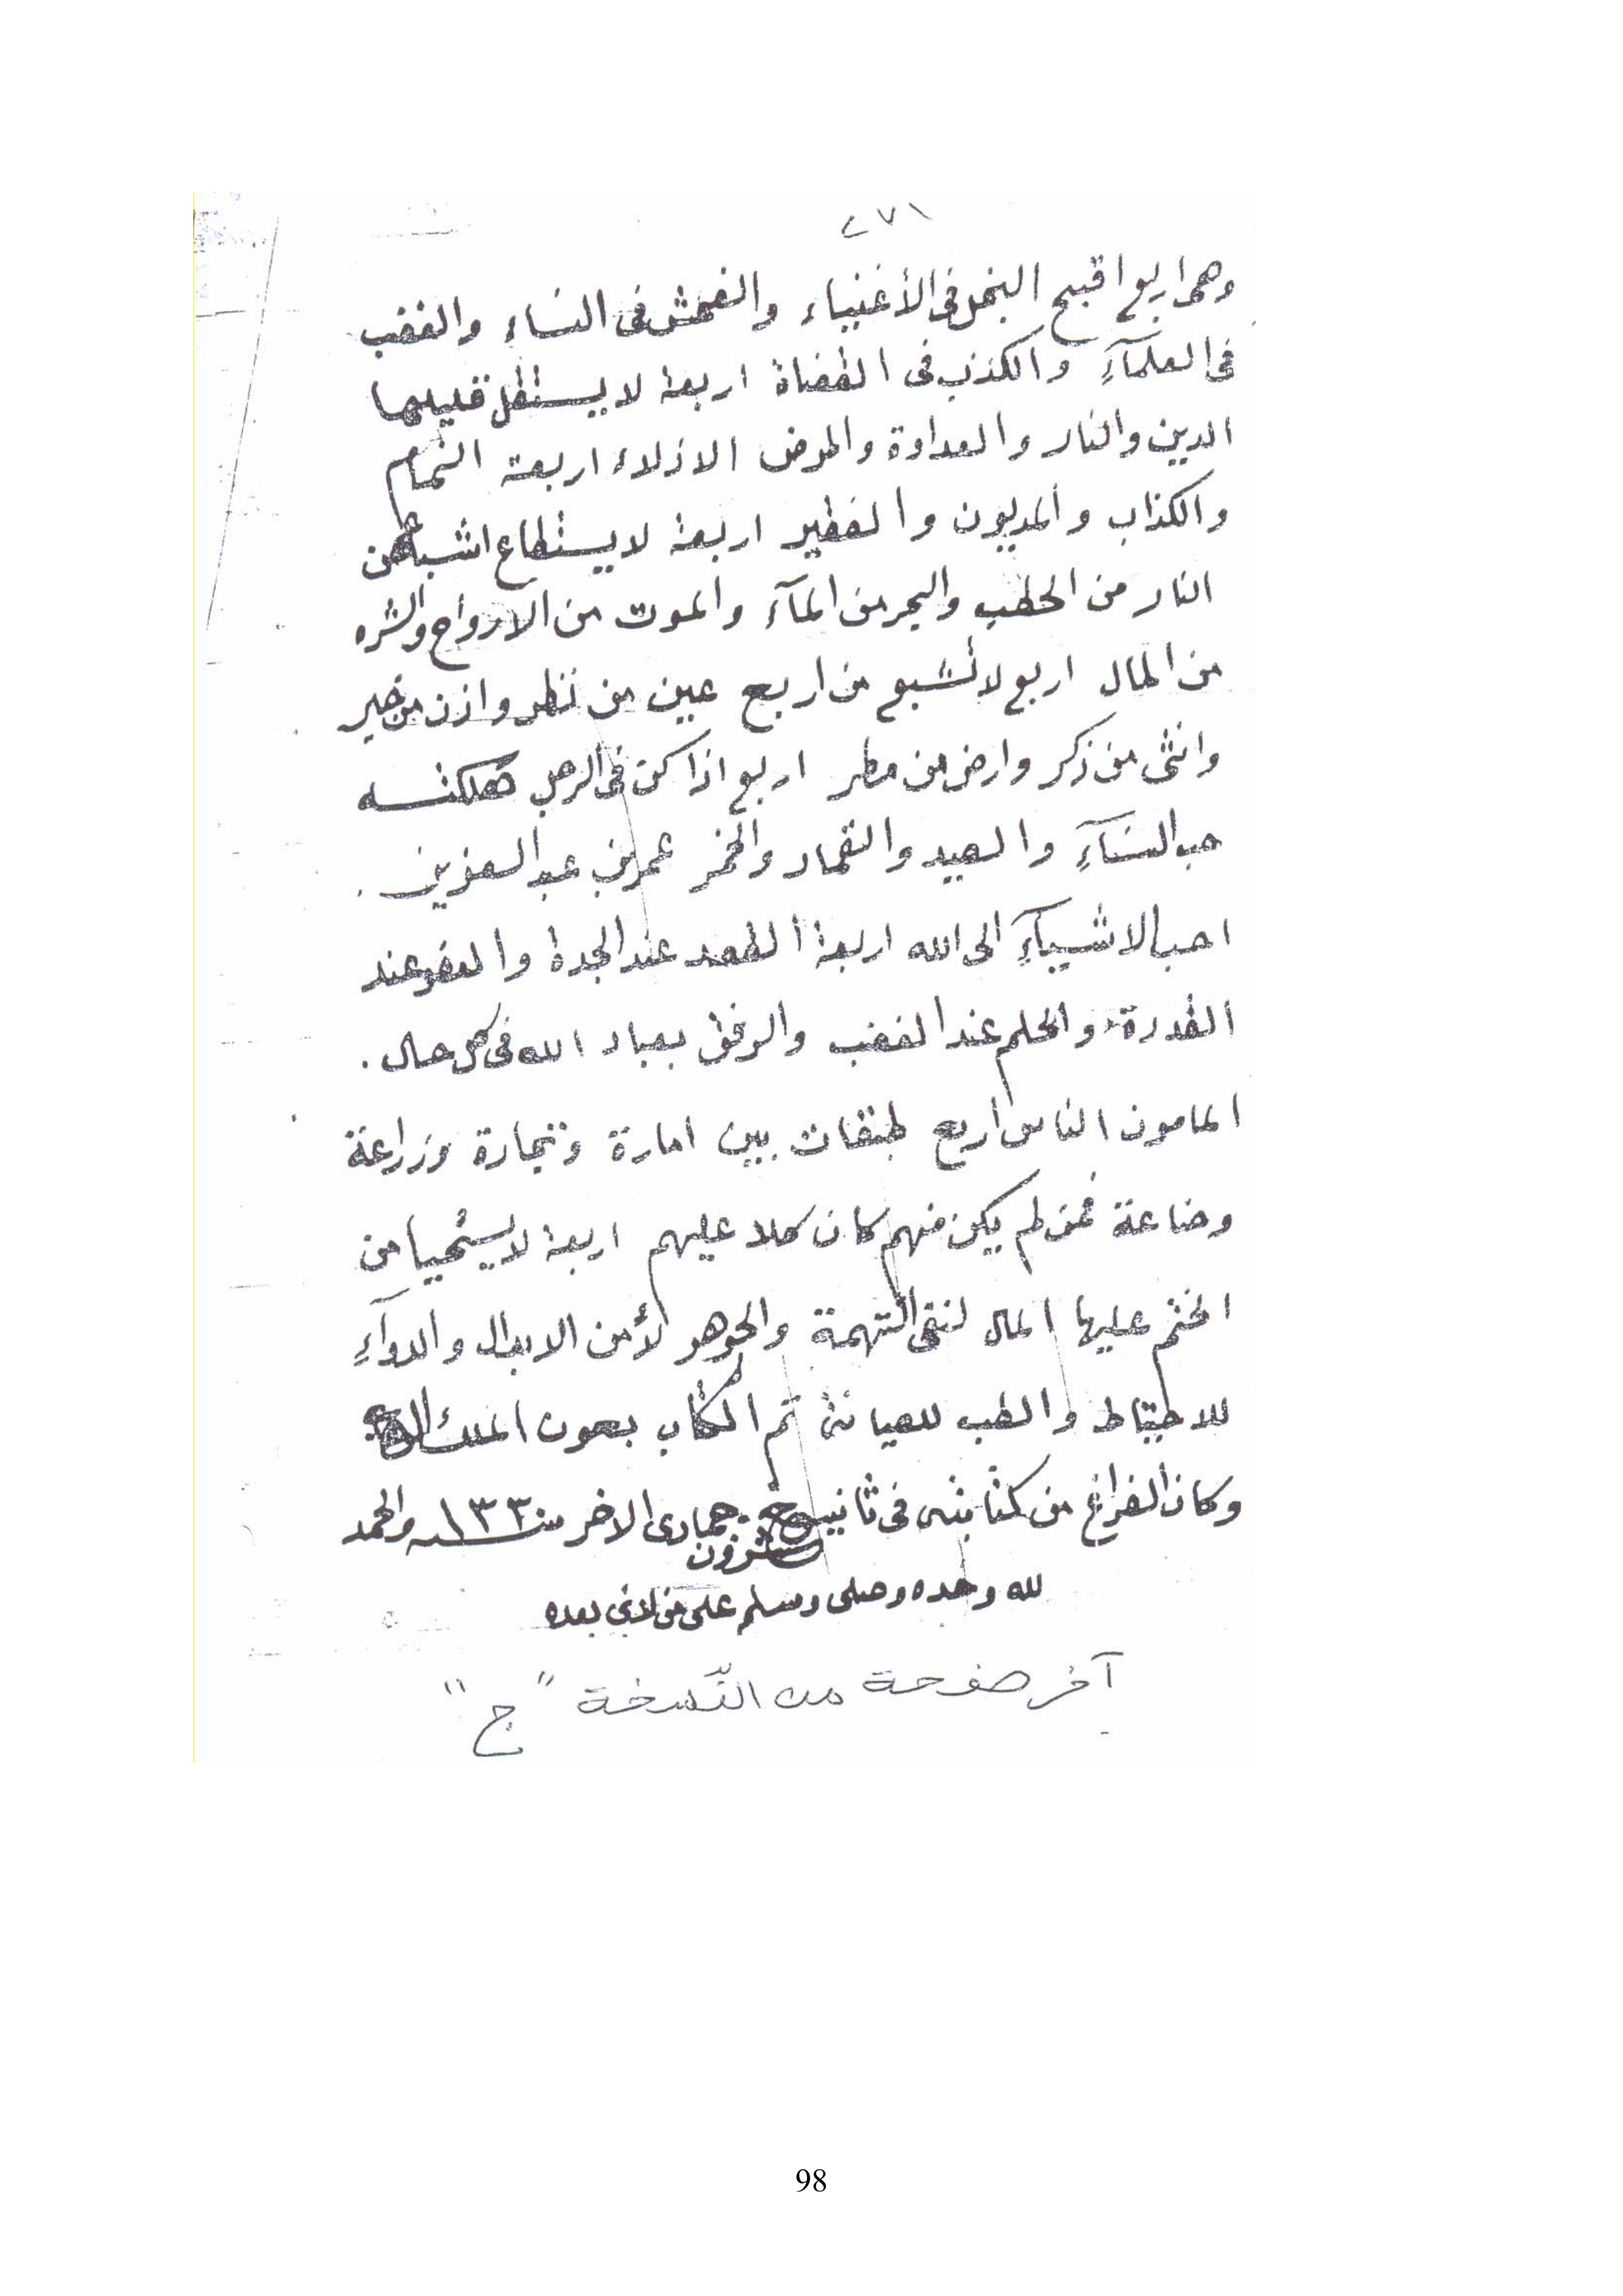 ٢٧١
وهى اربع اقبح البخل فى الأغنياء والفحش فى النساء والغضب
فى العلمآءِ والكذب فى القضاة اربعة لا يستقل قليلها
الدين والنار والعداوة والمرض الاذلاء اربعة النمام
والكذاب والمديون والفقير اربعة لا يستطاع اشباعهن
النار من الحطب والبحر من المآء والموت من الارواح والشره
من المال اربع لا تشبع من اربع عين من نظر واذن من خبر
وانثى من ذكر وارض من مطر اربع اذا كن فى الرجل هلكته
حب النسآءِ والصيد والقمار والخمر عمر بن عبد العزيز.
احب الاشيآءِ الى الله اربعة القصد عند الجدة والعفو عند
القدرة والحلم عند الغضب والرفق بعباد الله فى كل حال.
المامون الناس اربع طبقات بين امارة وتجارة وزراعة
وصناعة فمن لم يكن منهم كان كلا عليهم اربعة لا يستحيا من
الختم عليها المال لنفى التهمة والجوهر لأمن الابدال والدوآءِ
للاحتياط والطيب للصيانة تم الكتاب بعون الملك
وكان الفراغ من كتابته فى ثانية وعشرون جمادى الاخر سنه ١٣٣٠ والحمد
لله وحده وصلى وسلم على من لا نبي بعده
آخر صفحة من النّسخة "ج"
98